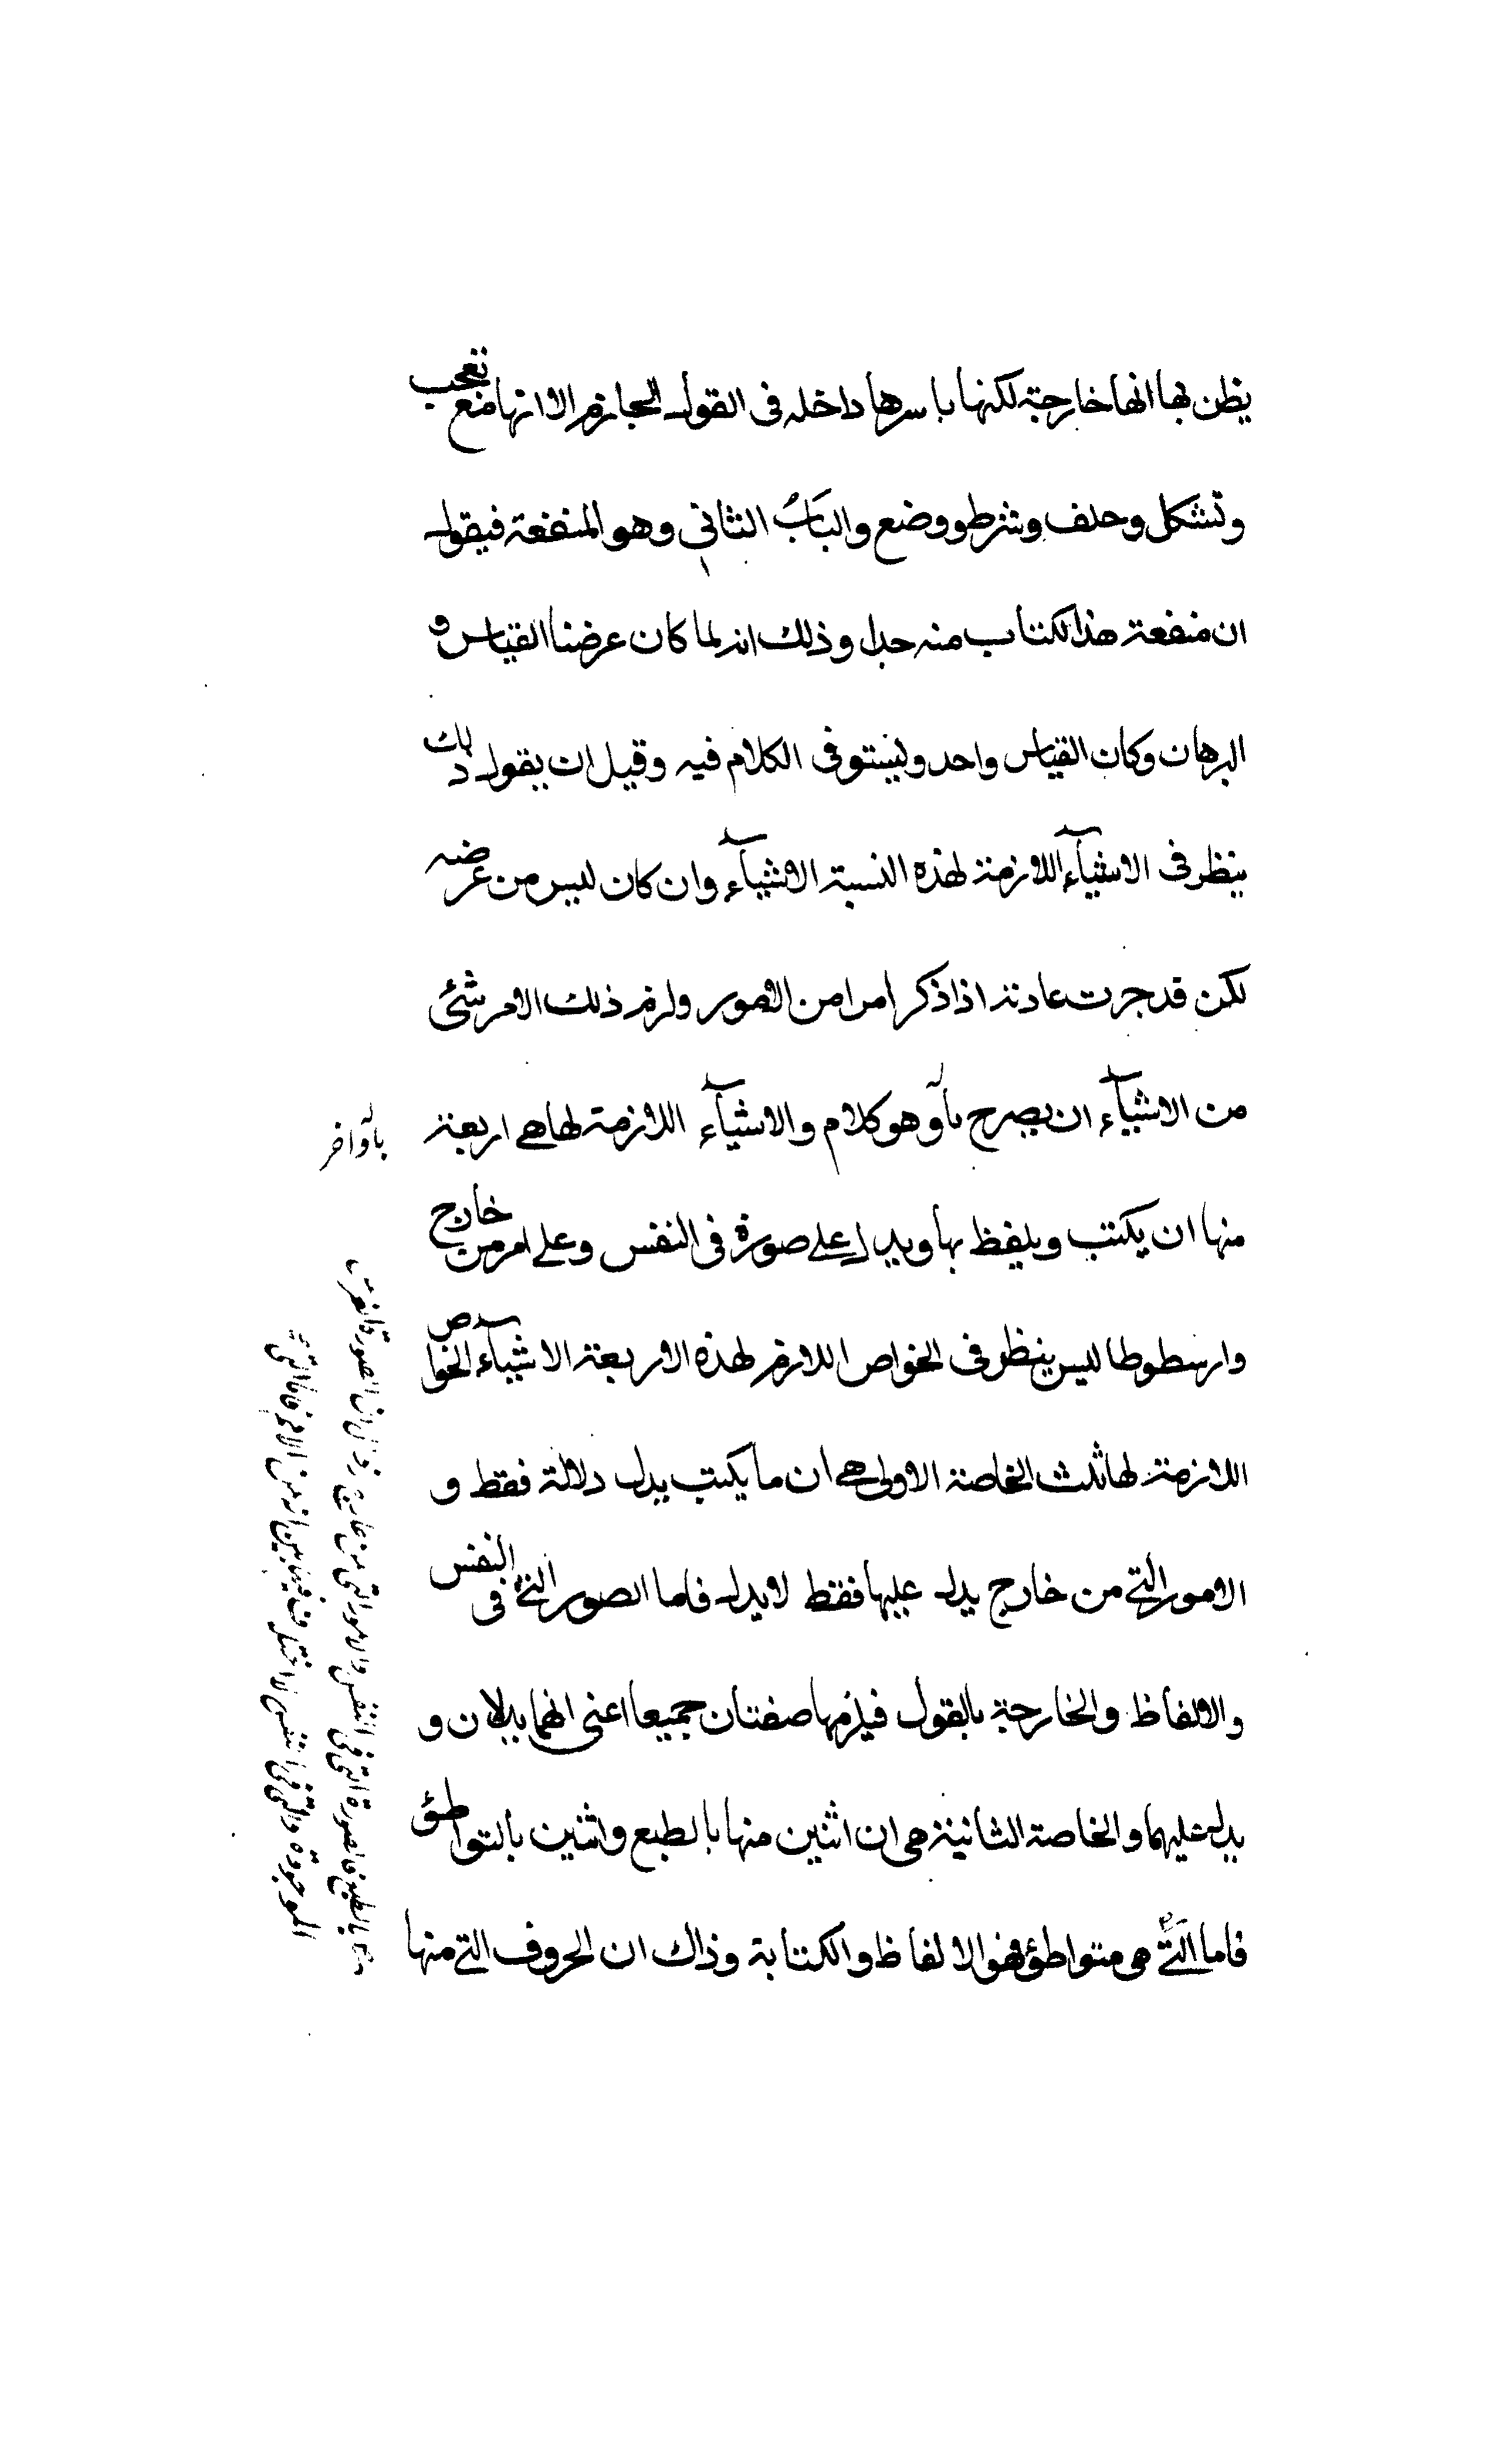 يظن بها انها خارجة لكنها باسرها داخله فى القول الجازم الا انها مع تعجب
وتشكل وحلف وشرط ووضع والبابُ الثاني وهو المنفعة فيقول
ان منفعة هذا لكتاب منه جدا وذلك انه لما كان عرضنا القياس و
البرهان وكان القياس واحد وليستوفى الكلام فيه وقيل ان يقول ذلك
ينظر فى الاشيآء اللازمة لهذه النسبة الاشيآء وان كان ليس من عرضه
لكن قد جرت عادته اذا ذكر امرا من الامور ولزم ذلك الامر شئى
من الاشيآء ان يصرح بآو وهو كلام والاشيآء اللازمة لها هے اربعة
منها ان يكتب ويلفظ بها ويدل علے صورة فى النفس وعلے امر من خارج
وارسطوطا ليس ينظر فى الخواص اللازم لهذه الاربعة الاشيآء الخواص
اللازمة لها ثلث الخاصة الاولى هے ان ما يكتب يدل دلالة فقط و
الامور التے من خارج يدل عليها فقط لا يدل فاما الصور التے فى النفس
والالفاظ والخارجة بالقول فيلزمها صفتان جميعا اعنى انهما يدلان و
يدل عليهما والخاصة الثانية هى ان اثنين منها بالطبع واثنين بالتواطئ
فاما التے هى متواطؤ فهو الالفاظ والكتابة وذاك ان الحروف التے منها
بآو آخر
بالطبع فالصورة التى فى النفس والامور التى من خارج
الموجودة والتى فى النفس